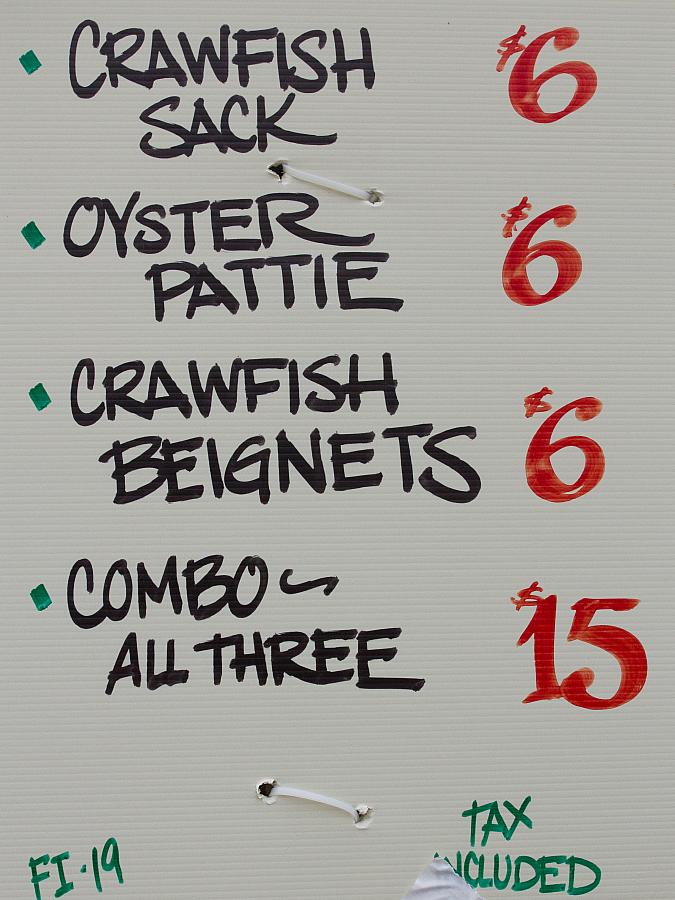 CRAWFISH $6
SACK
OYSTER $6
PATTIE
CRAWFISH
BEIGNETS $6
COMBO ~
ALL THREE $15
TAX
INCLUDED
FI-19